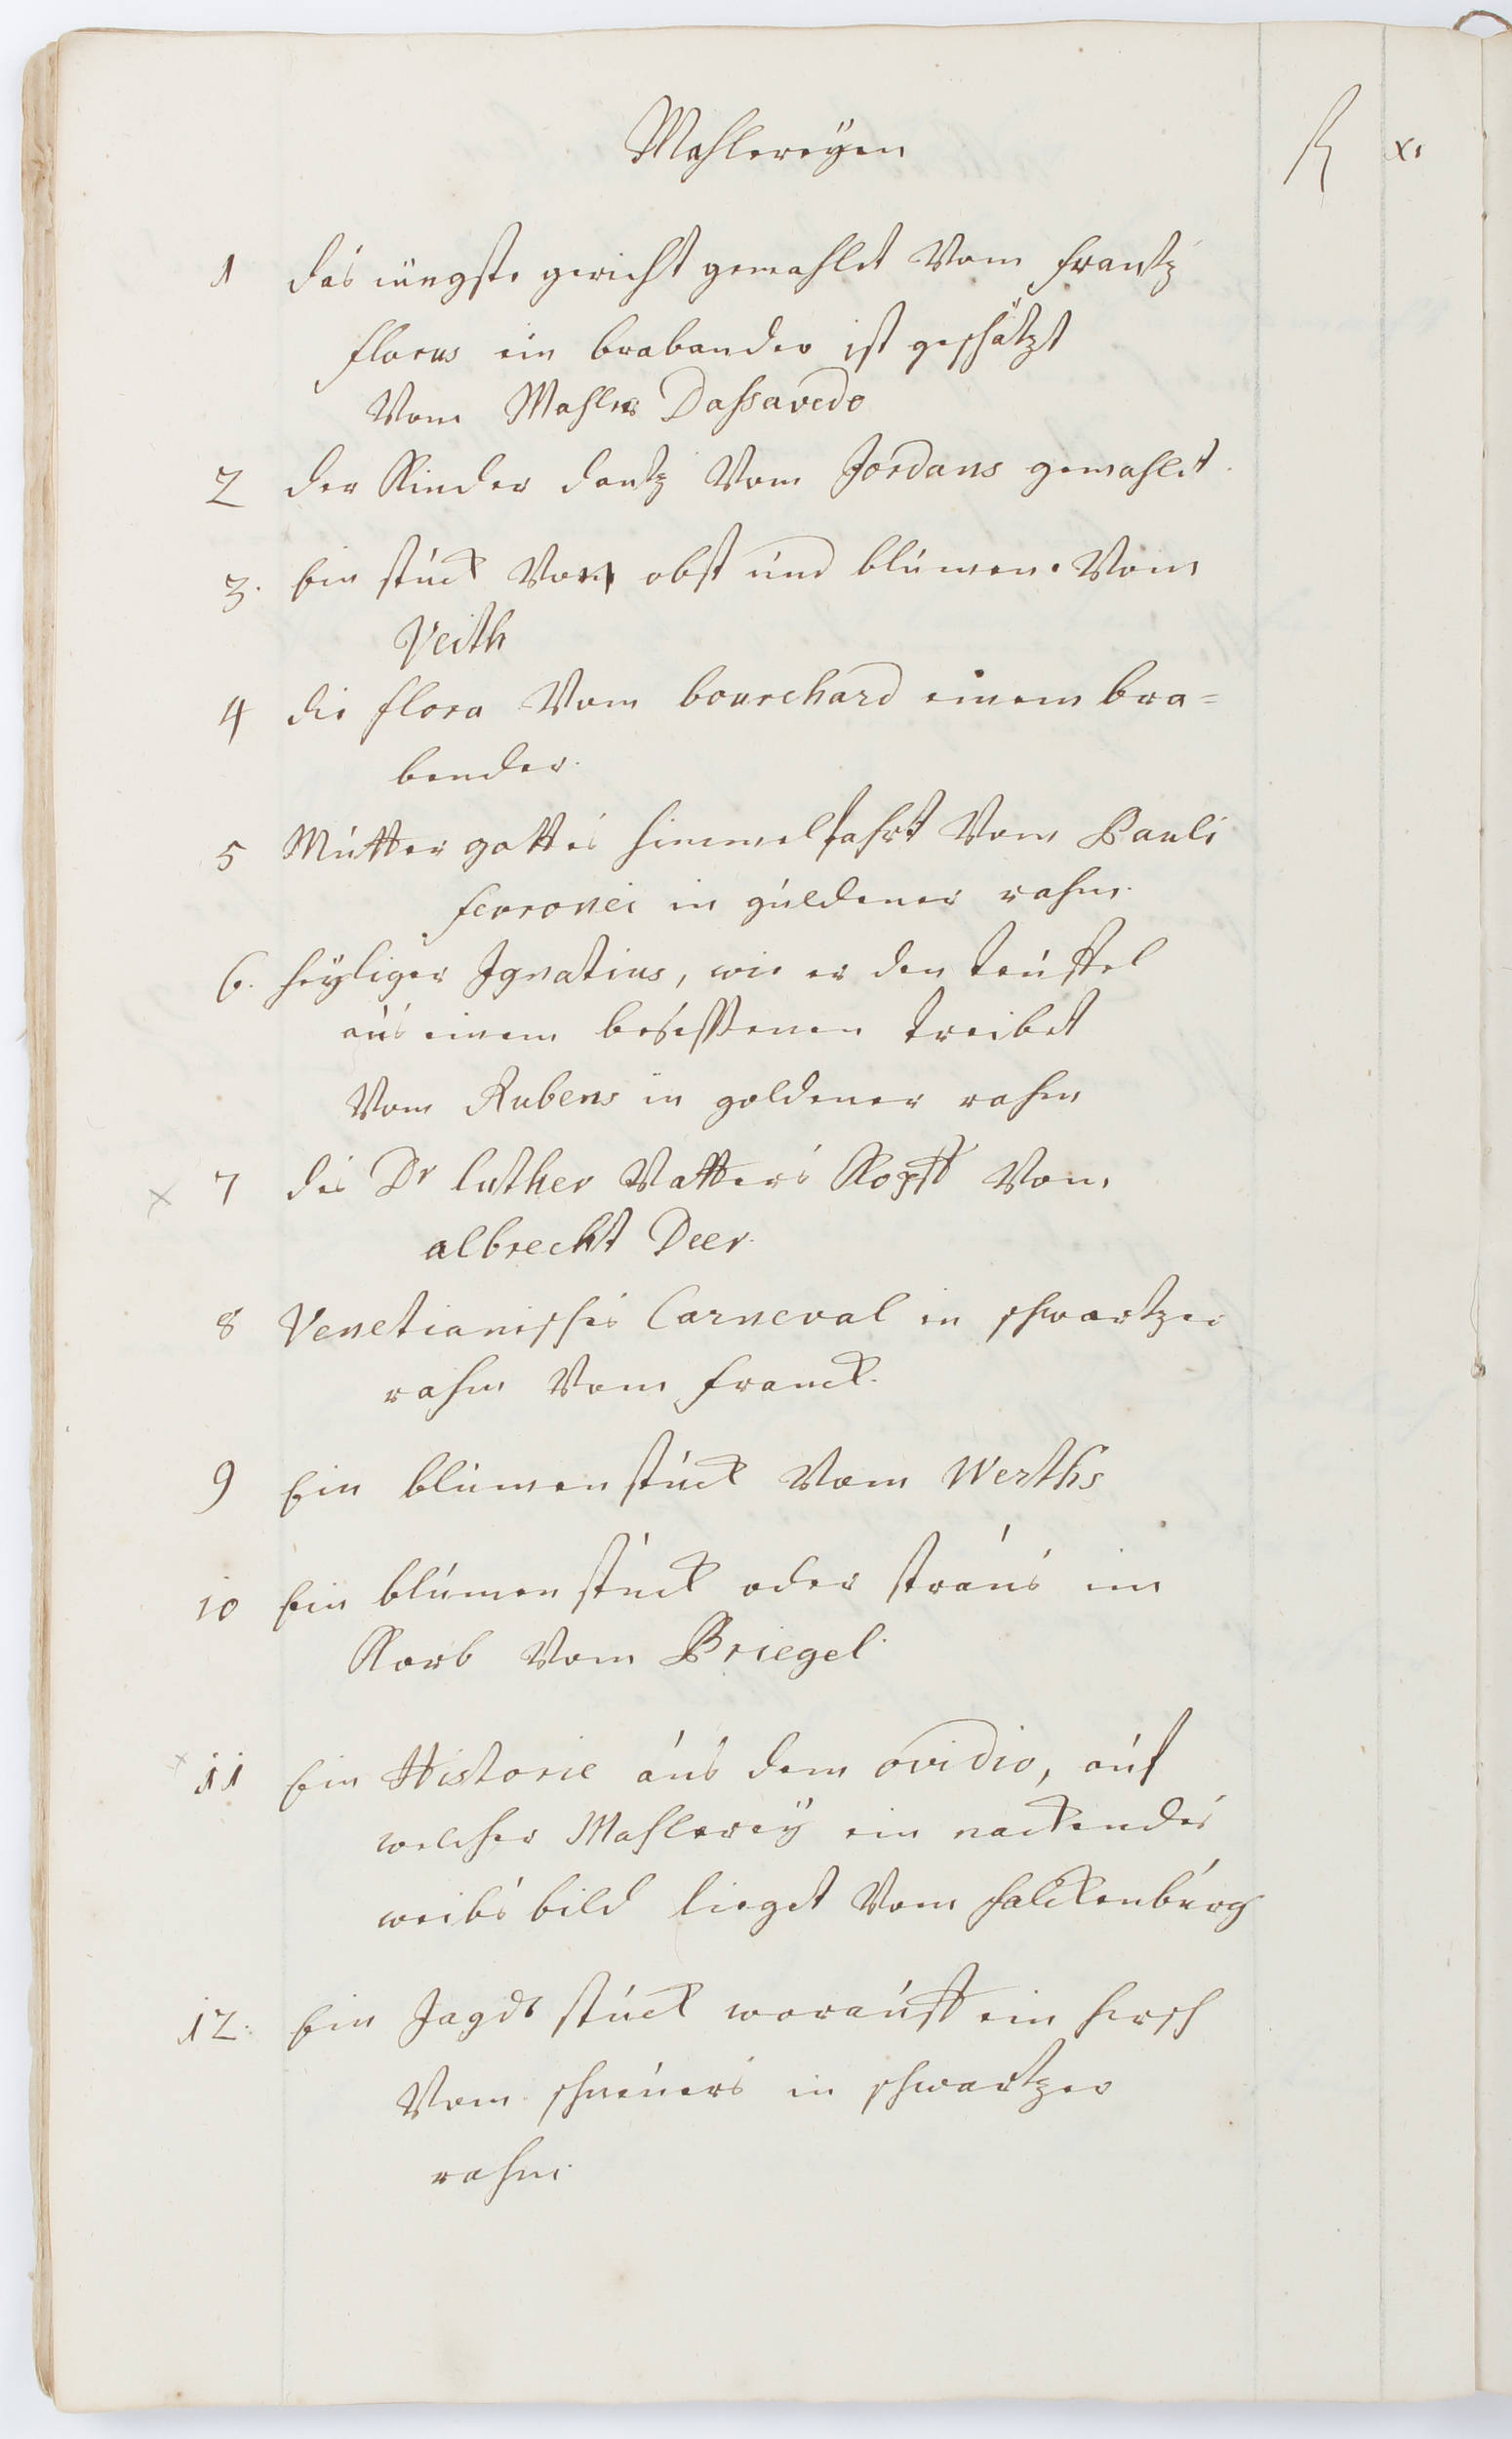 Mahlereÿen
R xr
1 das iüngste gericht gemahlet Vom frantz
florus ein brabander ist geschätzt
Vom Mahler Dassavedo
2 der Kinder dantz Vom Jordans gemahlet.
3. Ein stück Von obst und blumen. Vom
Veith
4 die flora Vom bourchard einem bra=
bender.
5 Mutter gottes himmelfahrt Vom Pauli
feroneei in güldener rahm.
6. heÿliger Ignatius, wie er den teuffel
aus einem besessenen treibet
Vom Rubens in goldener rahm
x 7 des Dr luther Vatters Kopff Von
albrecht Deer.
8 Venetianisches Carneval in schwartzer
rahm Vom franck.
9 Ein blumenstück Vom Werths
10 Ein blumenstück oder straus im
Korb Vom Briegel.
x 11 Ein Historie aus dem ovidio, auf
welcher Mahlereÿ ein nackendes
weibsbild lieget Vom falckenburg
12. Ein Jagdt stück worauff ein hirsch
Vom schneüers in schwartzer
rahm.